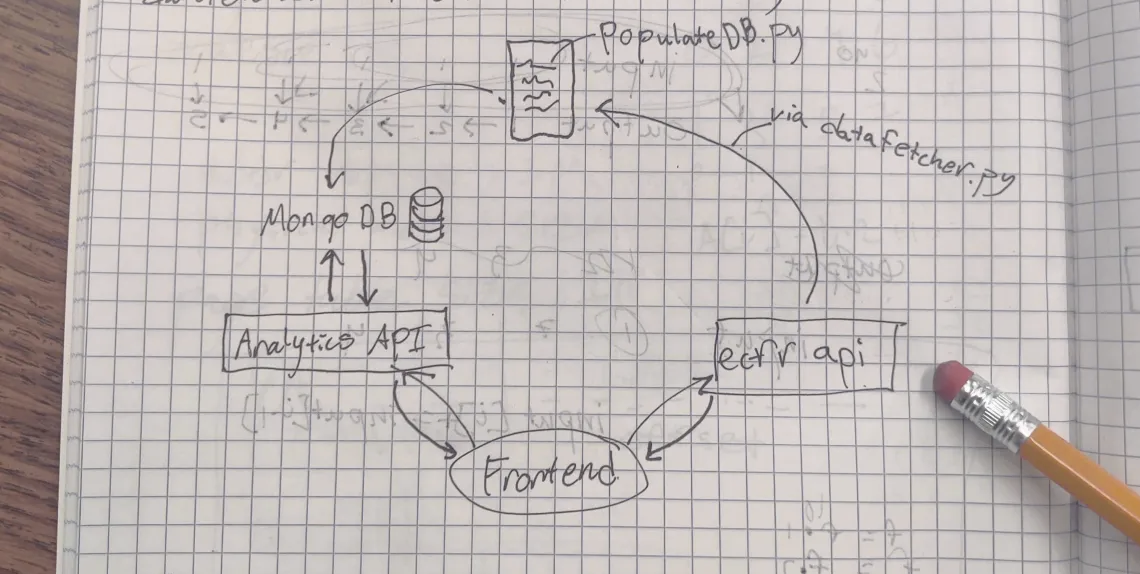 PopulateDB.py
via datafetcher.py
MongoDB
Analytics API
ecfr api
Frontend